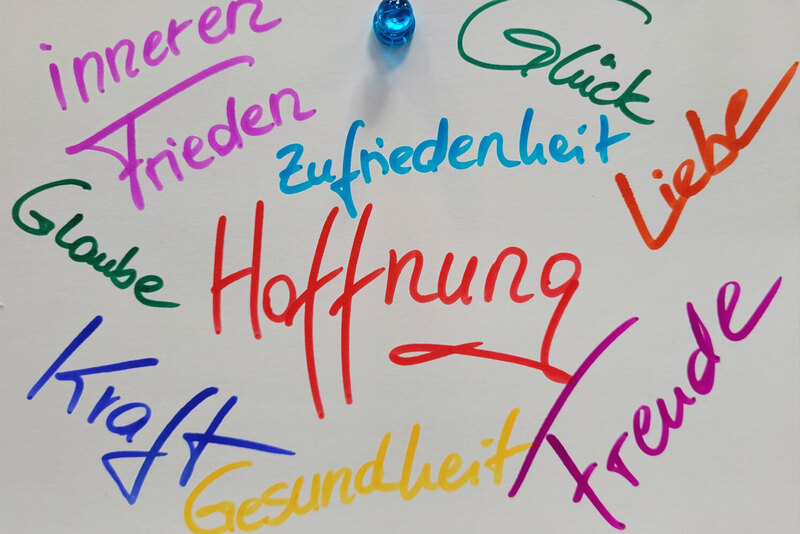 inneren
Frieden
Glück
Zufriedenheit
Liebe
Glaube
Hoffnung
Kraft
Freude
Gesundheit